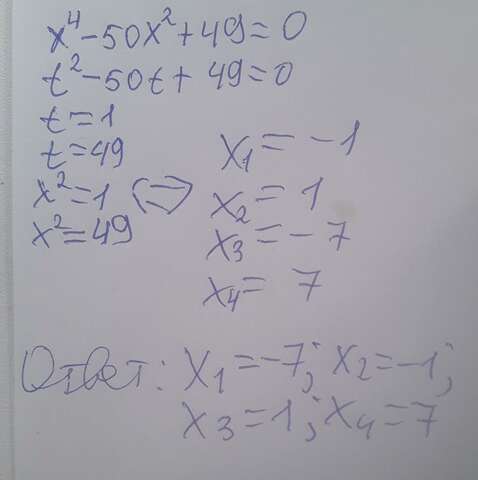 x⁴-50x²+49=0
t²-50t+49=0
t=1
t=49
x²=1 <=>
x²=49
x₁=-1
x₂=1
x₃=-7
x₄=7
Ответ: x₁=-7; x₂=-1;
x₃=1; x₄=7